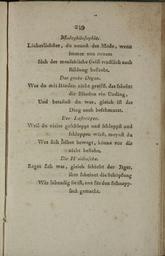 239
Modephilosophie.
Lächerlichster, du nennst das Mode, wenn
immer von neuem
Sich der menschliche Geist ernstlich nach
Bildung bestrebt.
Das grobe Organ.
Was du mit Händen nicht greifst, das scheint
dir Blinden ein Unding,
Und betastest du was, gleich ist das
Ding auch beschmutzt.
Der Lastträger.
Weil du vieles geschleppt und schleppst und
schleppen wirst, meynst du
Was sich selber bewegt, könne vor dir
nicht bestehn.
Die Waidtasche.
Reget sich was, gleich schießt der Jäger,
ihm scheinet die Schöpfung
Wie lebendig sie ist, nur für den Schnapp-
sack gemacht.